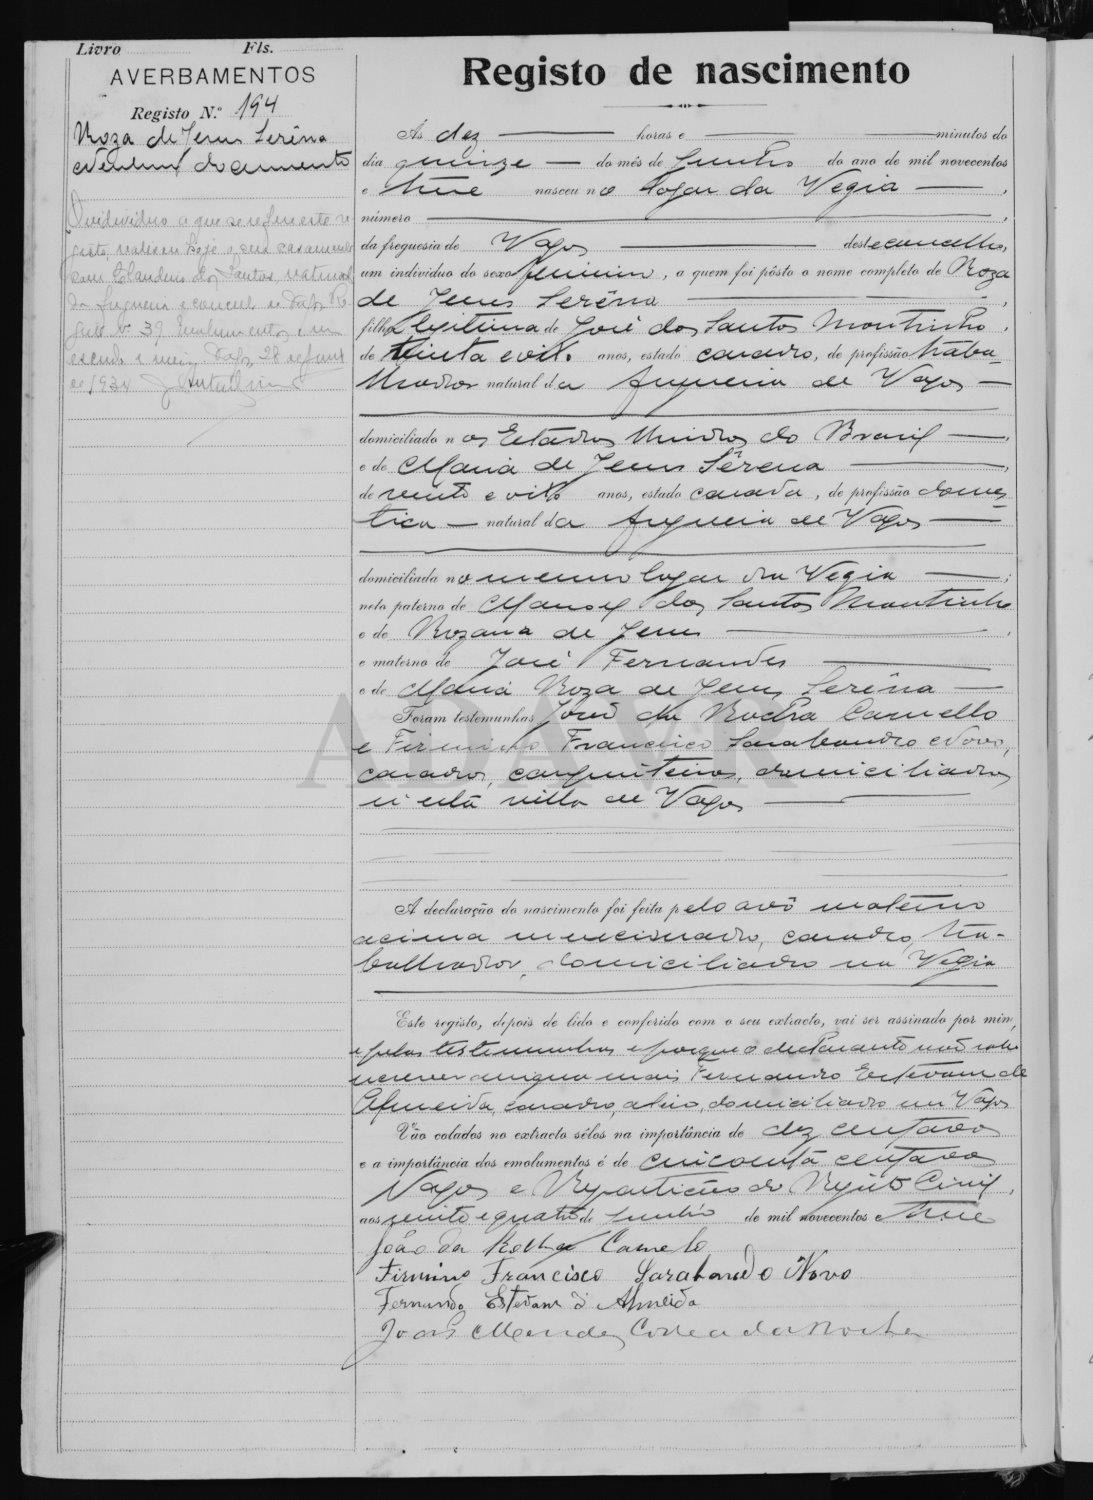 Livro Fls.
AVERBAMENTOS
Registo N.º 194
Roza de Jesus Serêna
Nenhum documento
O individuo a que se refere este re-
gisto, realisou hoje o seu casamento
com Claudino dos Santos, natural
da freguesia e concelho de Vagos. Re-
gisto n.º 39. Emolumentos: um
escudo e meio. Vagos, 28 de
de 1934
Registo de nascimento
Às dez horas e minutos do
dia quinze do mês de Junho do ano de mil novecentos
e treze nasceu no logar da Vegia,
número,
da freguesia de Vagos deste concelho,
um individuo do sexo feminino, a quem foi pôsto o nome completo de Roza
de Jesus Serêna,
filha legitima de José dos Santos Moutinho,
de trinta e oito anos, estado casado, de profissão traba-
lhador natural da freguesia de Vagos
domiciliado nos Estados Unidos do Brasil,
e de Maria de Jesus Serêna,
de vinte e oito anos, estado casada, de profissão domes-
tica natural da freguesia de Vagos
domiciliada no mesmo logar da Vegia;
neto paterno de Manoel dos Santos Moutinho
e de Rozana de Jesus,
e materno de José Fernandes
e de Maria Roza de Jesus Serêna
Foram testemunhas João da Rocha Camello
e Firmino Francisco Sarabando Novo,
casados, carpinteiros, domiciliados
n'esta villa de Vagos
ADAVR
A declaração do nascimento foi feita pelo avô materno
acima mencionado, casado, tra-
balhador, domiciliado na Vegia
Este registo, depois de lido e conferido com o seu extracto, vai ser assinado por mim,
e pelas testemunhas e porque o declarante não sabe
escrever assigna mais Fernando Estevam de
Almeida, casado, domiciliado em Vagos
Vão colados no extracto sêlos na importância de dez centavos
e a importância dos emolumentos é de cincoenta centavos
Vagos e Repartição do Registo Civil,
aos vinte e quatro de Junho de mil novecentos e treze
João da Rocha Camelo
Firmino Francisco Sarabando Novo
Fernando Estevam d'Almeida
João Mendes Correa da Rocha